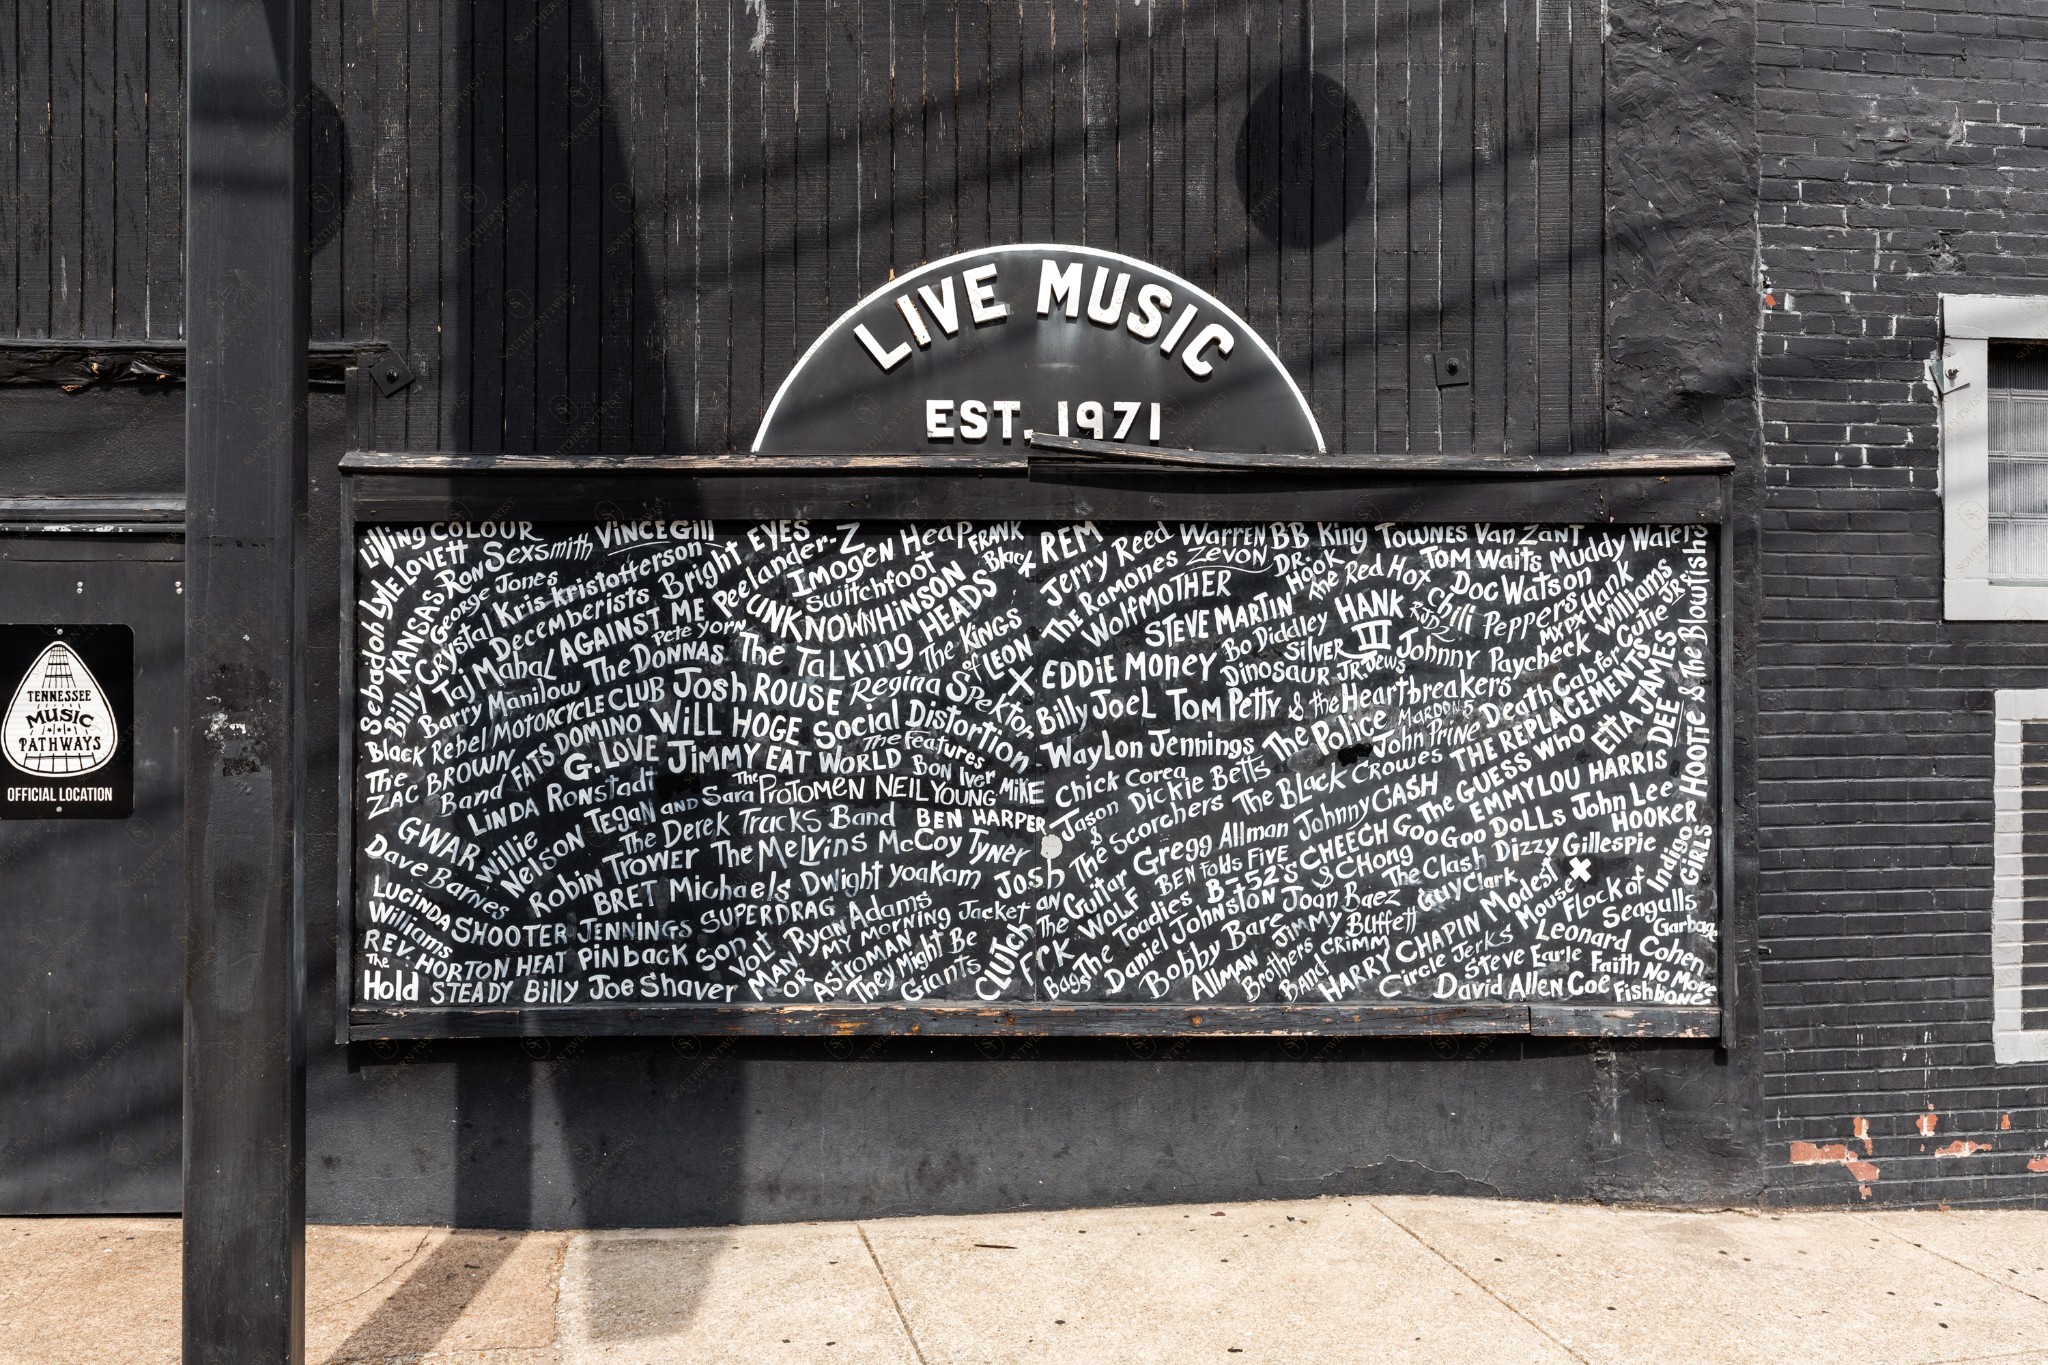 LIVE MUSIC
EST. 1971
TENNESSEE
MUSIC
PATHWAYS
OFFICIAL LOCATION
Living COLOUR
VINCE Gill
EYES
Peelander-Z
Imogen Heap
FRANK
Black
Lyle LOVETT
Ron Sexsmith
Kris Kristofferson
Bright
Switchfoot
Sebadoh
KANSAS
George Jones
UNKNOWN HINSON
Billy
Crystal
Taj Mahal
Decemberists
AGAINST ME
Pete Yorn
The Talking HEADS
The KINGS of LEON
X
Barry Manilow
The DONNAS
Josh ROUSE
Regina Spektor
Black Rebel MOTORCYCLE CLUB
WILL HOGE
Social Distortion
The ZAC BROWN Band
FATS DOMINO
G. LOVE
JIMMY EAT WORLD
The Features
Bon Iver
MIKE
LINDA Ronstadt
The PROTOMEN
NEIL YOUNG
GWAR
Willie Nelson
Tegan and Sara
The Derek Trucks Band
BEN HARPER
Dave Barnes
Robin Trower
The Melvins
McCoy Tyner
BRET Michaels
Dwight yoakam
Josh
LUCINDA Williams
SHOOTER JENNINGS
SUPERDRAG
Ryan Adams
MY MORNING Jacket
REV. HORTON HEAT
PINback
SON VOLT
MAN OR ASTROMAN
They Might Be Giants
CLUTCH
The Hold STEADY
Billy Joe Shaver
REM
Jerry Reed
Warren Zevon
BB King
Townes Van Zant
Muddy Waters
The Ramones
DR. Hook
Tom Waits
Wolfmother
The Red Hot Chili Peppers
Doc Watson
STEVE MARTIN
HANK III
RJD2
MXPX
Hank Williams JR.
Bo Diddley
Silver Jews
Johnny Paycheck
EDDIE MONEY
Dinosaur JR.
Death Cab for Cutie
Billy Joel
Tom Petty & the Heartbreakers
Hootie & The Blowfish
Waylon Jennings
The Police
MAROON 5
John Prine
THE REPLACEMENTS
ETTA JAMES
DEE
Chick Corea
Dickie Betts
The Black Crowes
The GUESS Who
Jason & The Scorchers
Johnny CASH
EMMYLOU HARRIS
Gregg Allman
CHEECH & CHong
Goo Goo DOLLS
John Lee HOOKER
The Guitar WOLF
BEN Folds FIVE
B-52's
The Clash
Dizzy Gillespie
Indigo GIRLS
The Toadies
Joan Baez
Guy Clark
Modest Mouse
Flock of Seagulls
Daniel Johnston
JIMMY Buffett
Garbage
F CK
Bags
Bobby Bare
Allman Brothers Band
GRIMM
HARRY CHAPIN
Circle Jerks
Leonard Cohen
Steve Earle
Faith No More
David Allen Coe
Fishbone